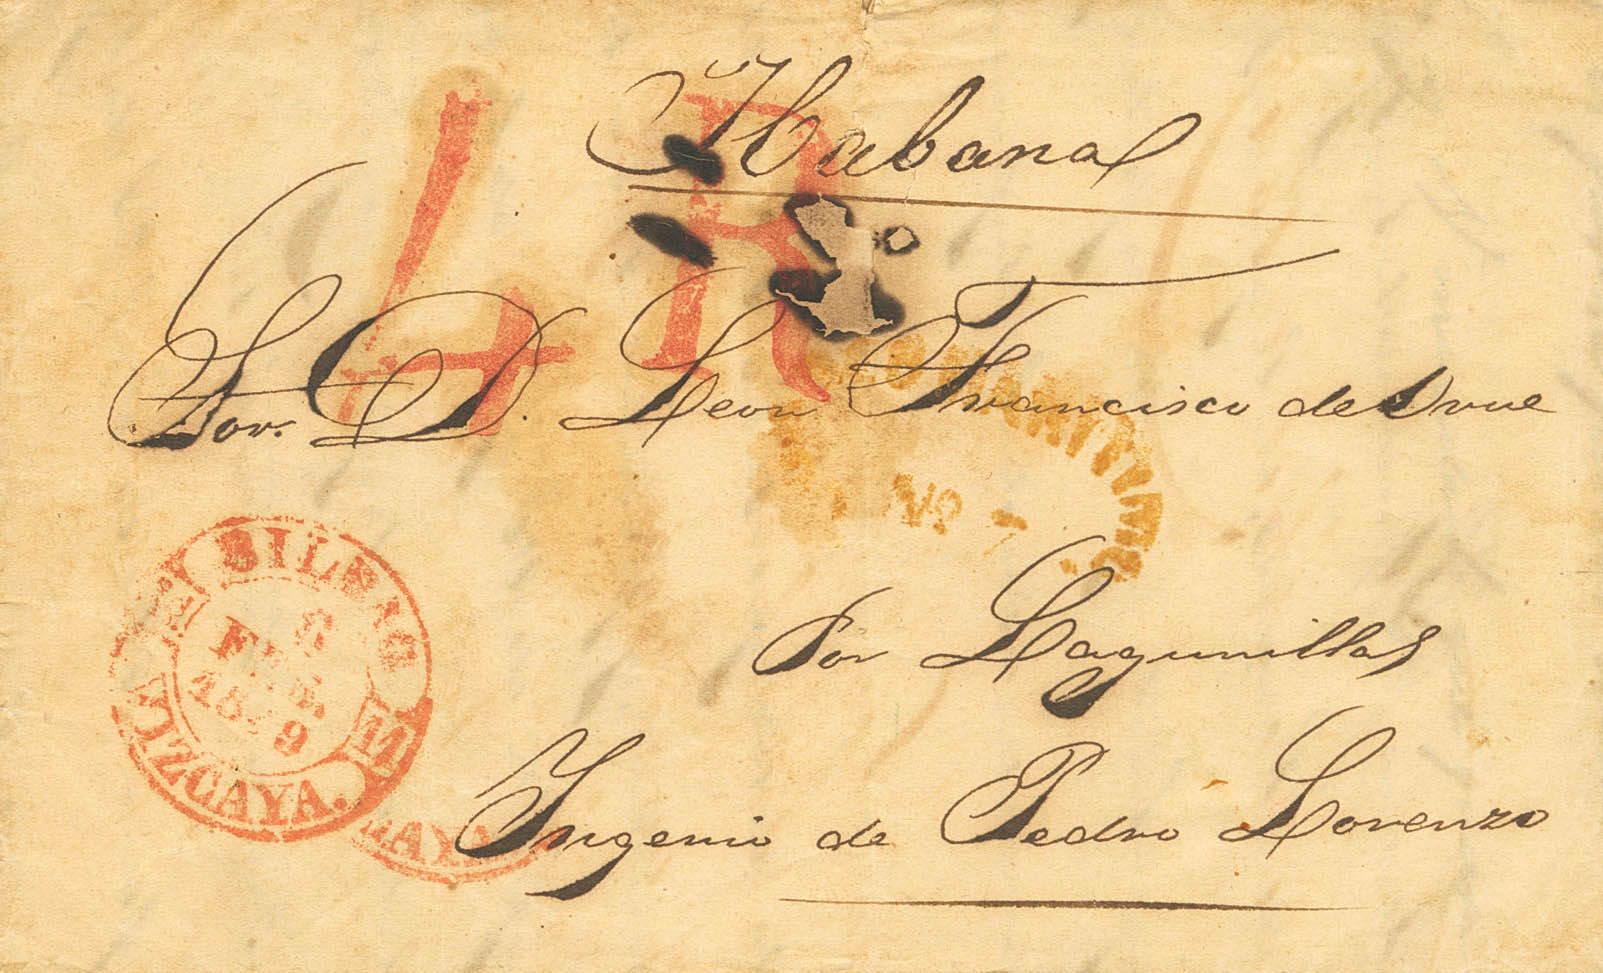 Habana
4R
Sor. D. Leon Francisco de Orue
MARITIMO
Nº 7
BILBAO
6
FEB.
1849
VIZCAYA.
Por Lagunillas
Ingenio de Pedro Lorenzo